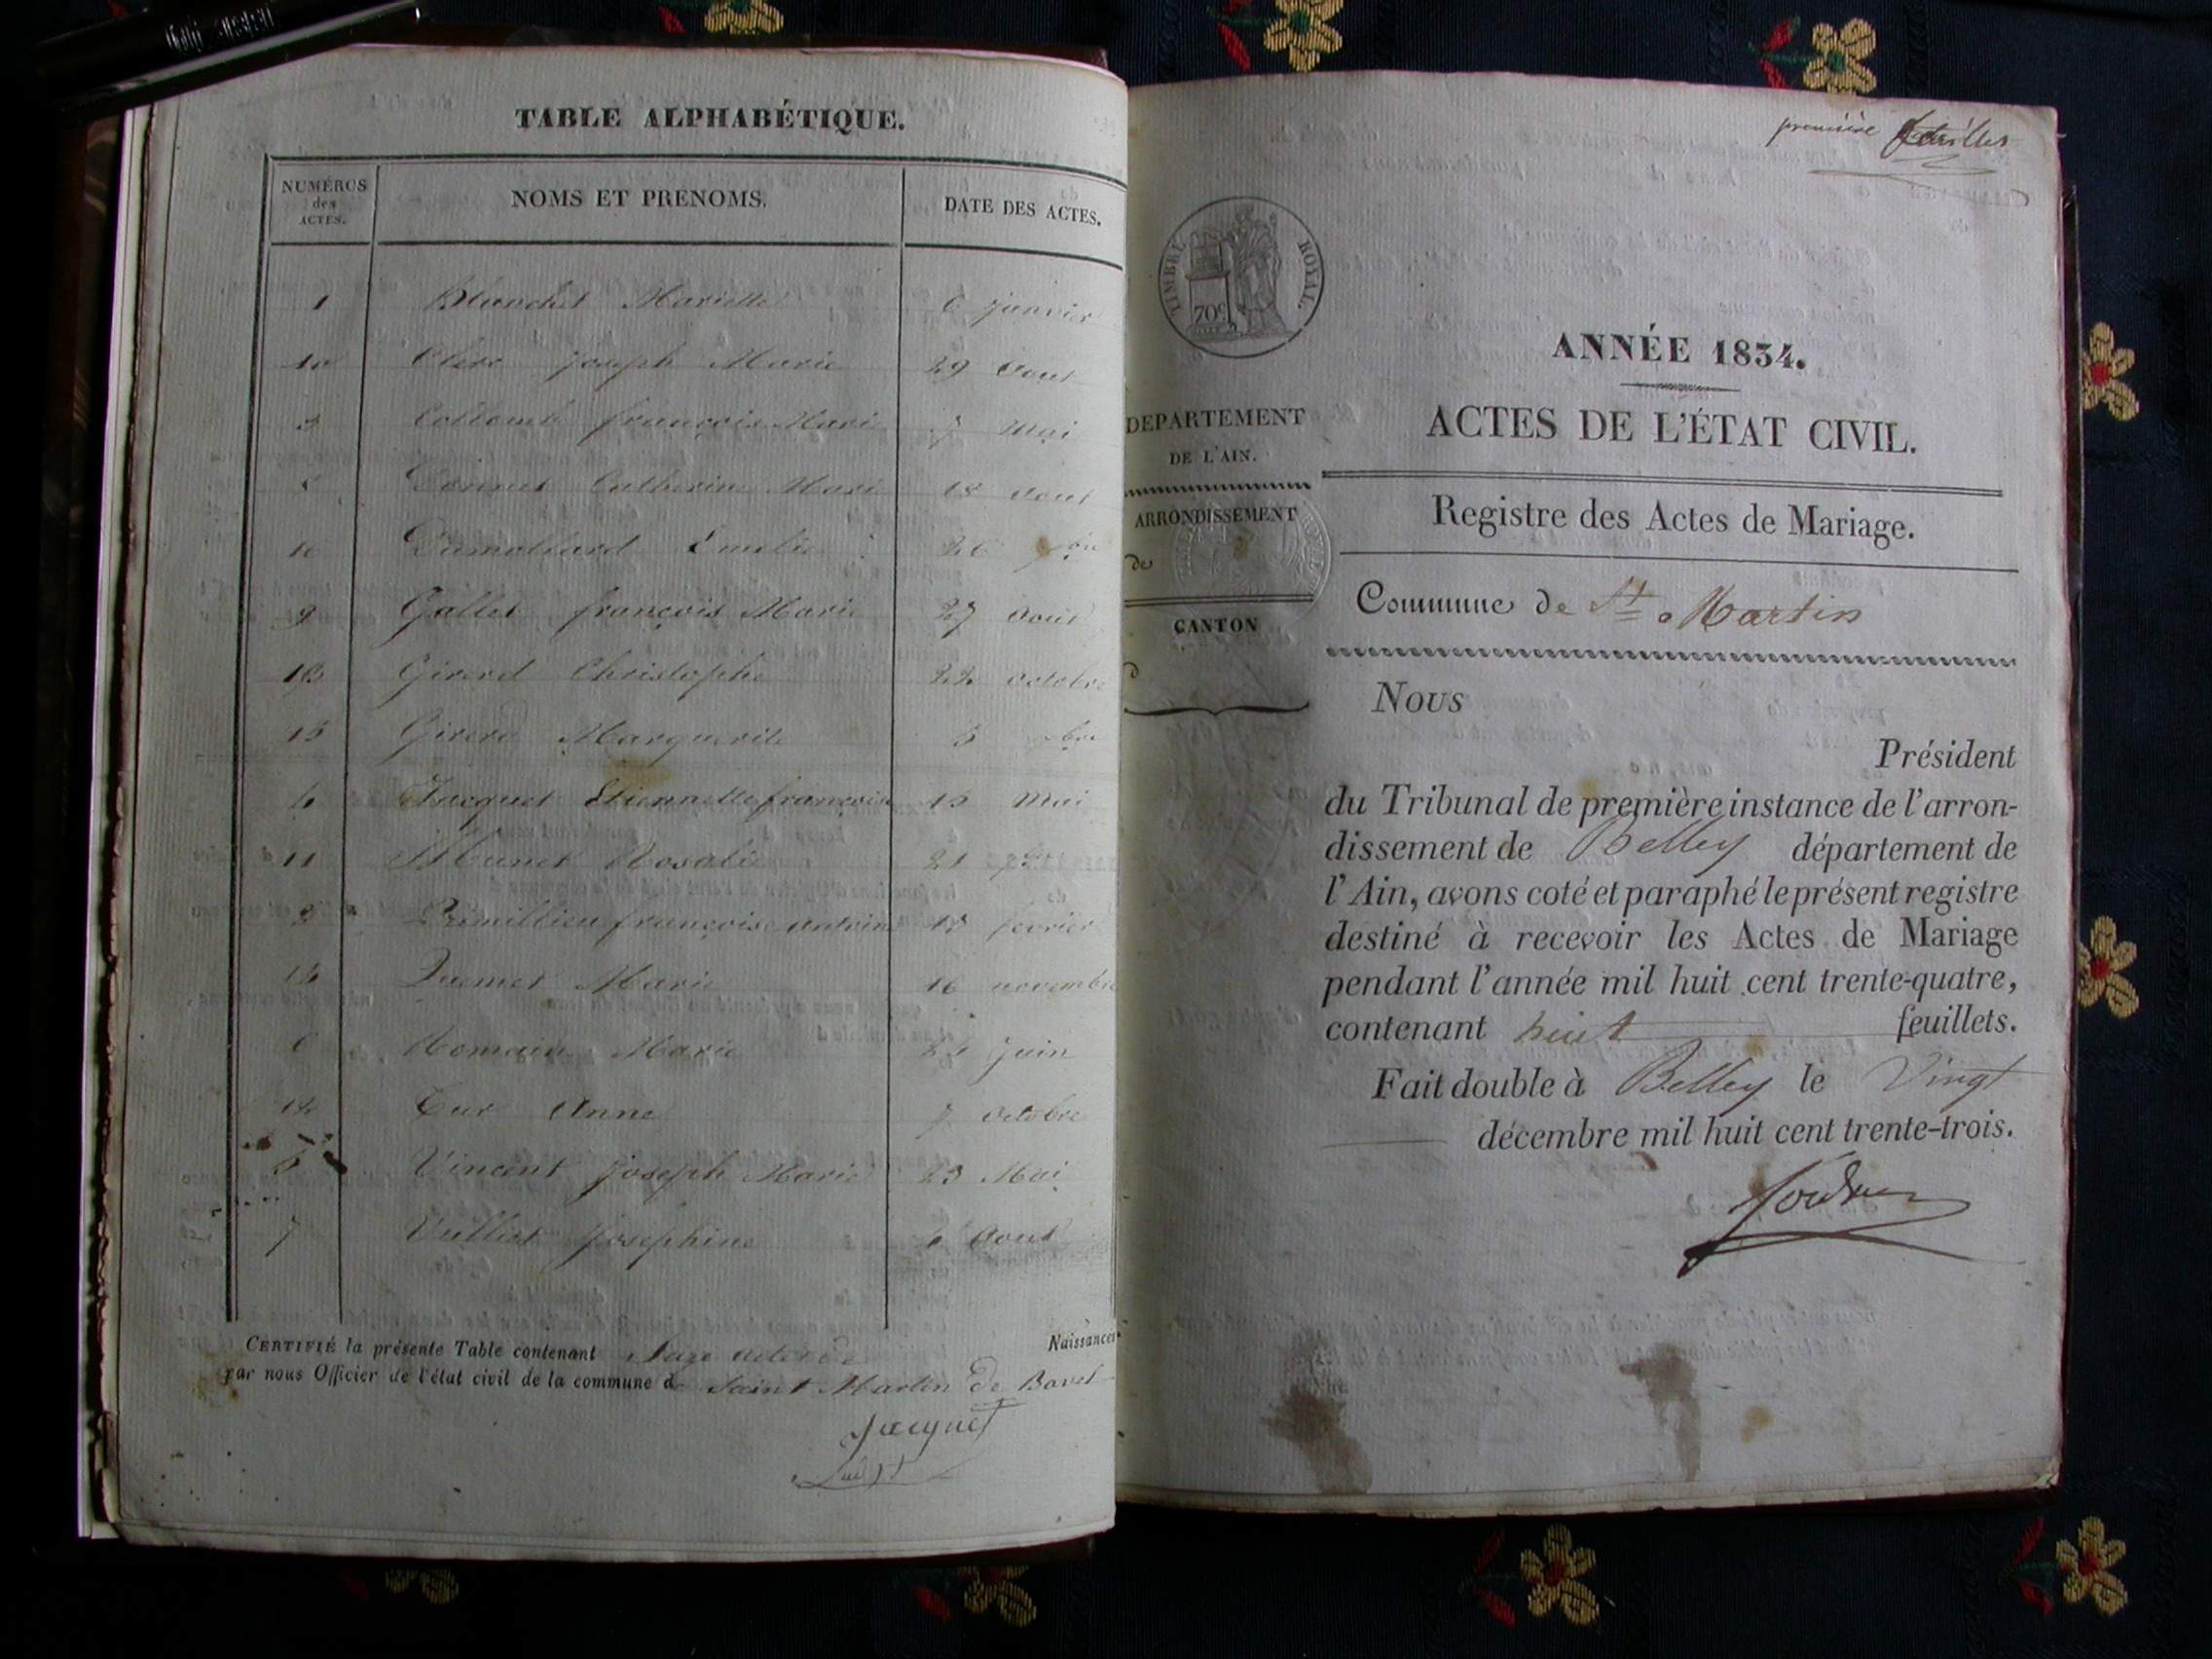 TABLE ALPHABÉTIQUE.
NUMÉROS des ACTES. NOMS ET PRENOMS. DATE DES ACTES.
1 Blanchet Mariette 6 janvier
10 Clerc joseph Marie 29 aout
3 Collomb françois Marie 7 Mai
8 Catherine Marie 18 aout
16 Dumollard Emelie 26
9 Gallet françois Marie 27 aout
13 Girerd Christophe 22 octobre
15 Girerd Marguerite 5 bre
4 Jacquet Etiennette françoise 15 Mai
11 Munet Rosalie 21
2 Premillieu françoise antoine 18 fevrier
14 Quemet Marie 16 novembre
6 Romain Marie Juin
12 Tur Anne 7 octobre
5 Vincent joseph Marie 23 Mai
7 Vulliet Josephine aout
CERTIFIÉ la présente Table contenant Naissances
par nous Officier de l'état civil de la commune de Saint Martin de Bavel
Jacquet
première
TIMBRE ROYAL.
70c
ANNÉE 1834.
ACTES DE L'ÉTAT CIVIL.
DEPARTEMENT
DE L'AIN.
ARRONDISSEMENT
de
CANTON
d
Registre des Actes de Mariage.
Commune de St Martin
Nous
Président
du Tribunal de première instance de l'arron-
dissement de Belley département de
l'Ain, avons coté et paraphé le présent registre
destiné à recevoir les Actes de Mariage
pendant l'année mil huit cent trente-quatre,
contenant huit feuillets.
Fait double à Belley le Vingt
décembre mil huit cent trente-trois.